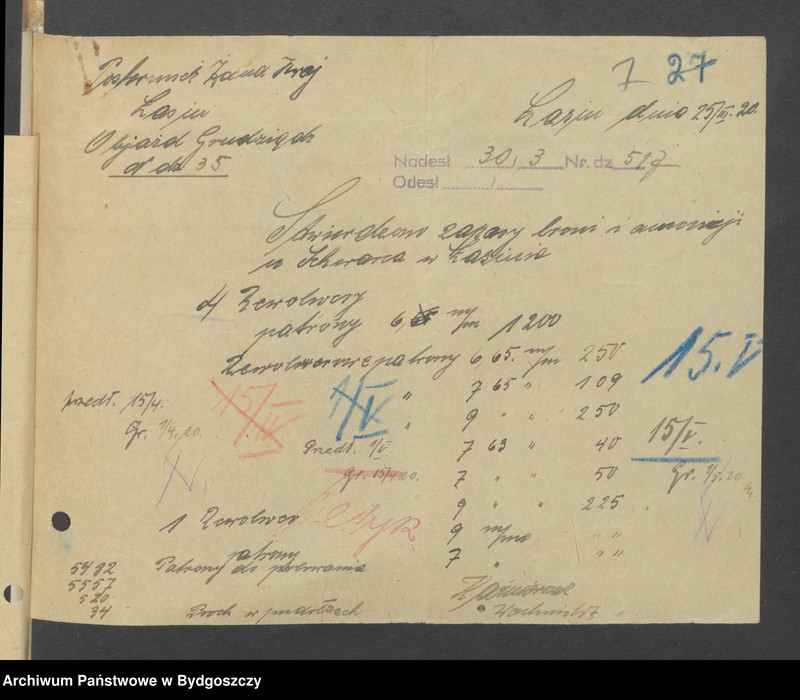 7 27
Posterunek Żand. Kraj
Łasin
Objazd Grudziądz
N dz 35
Łasin dnia 25/III. 20.
Nadesł 30/3 Nr. dz 517
Odesł /
Stwierdzono zapasy broni i amonicji
u w Łasinie
Rewolwery
patrony 6, m/m 1200
Rewolwerowe patrony 6,65. m/m 250
" 7 65 " 109
" 9 " " 250
7 63 " 40
7 " " 50
9 " " 225
1 Rewolwer 9 m/m " "
patrony 7 " " "
przedł. 15/4.
Gr. 1/4. 20.
15/IV
1/V
Przedł. 1/V
Gr. 15/4 20.
15.V
15/V.
Gr. 1/5. 20.
5482 Patrony do polowania
5557
520
34 Proch w pudełkach
Wachmistrz
Archiwum Państwowe w Bydgoszczy